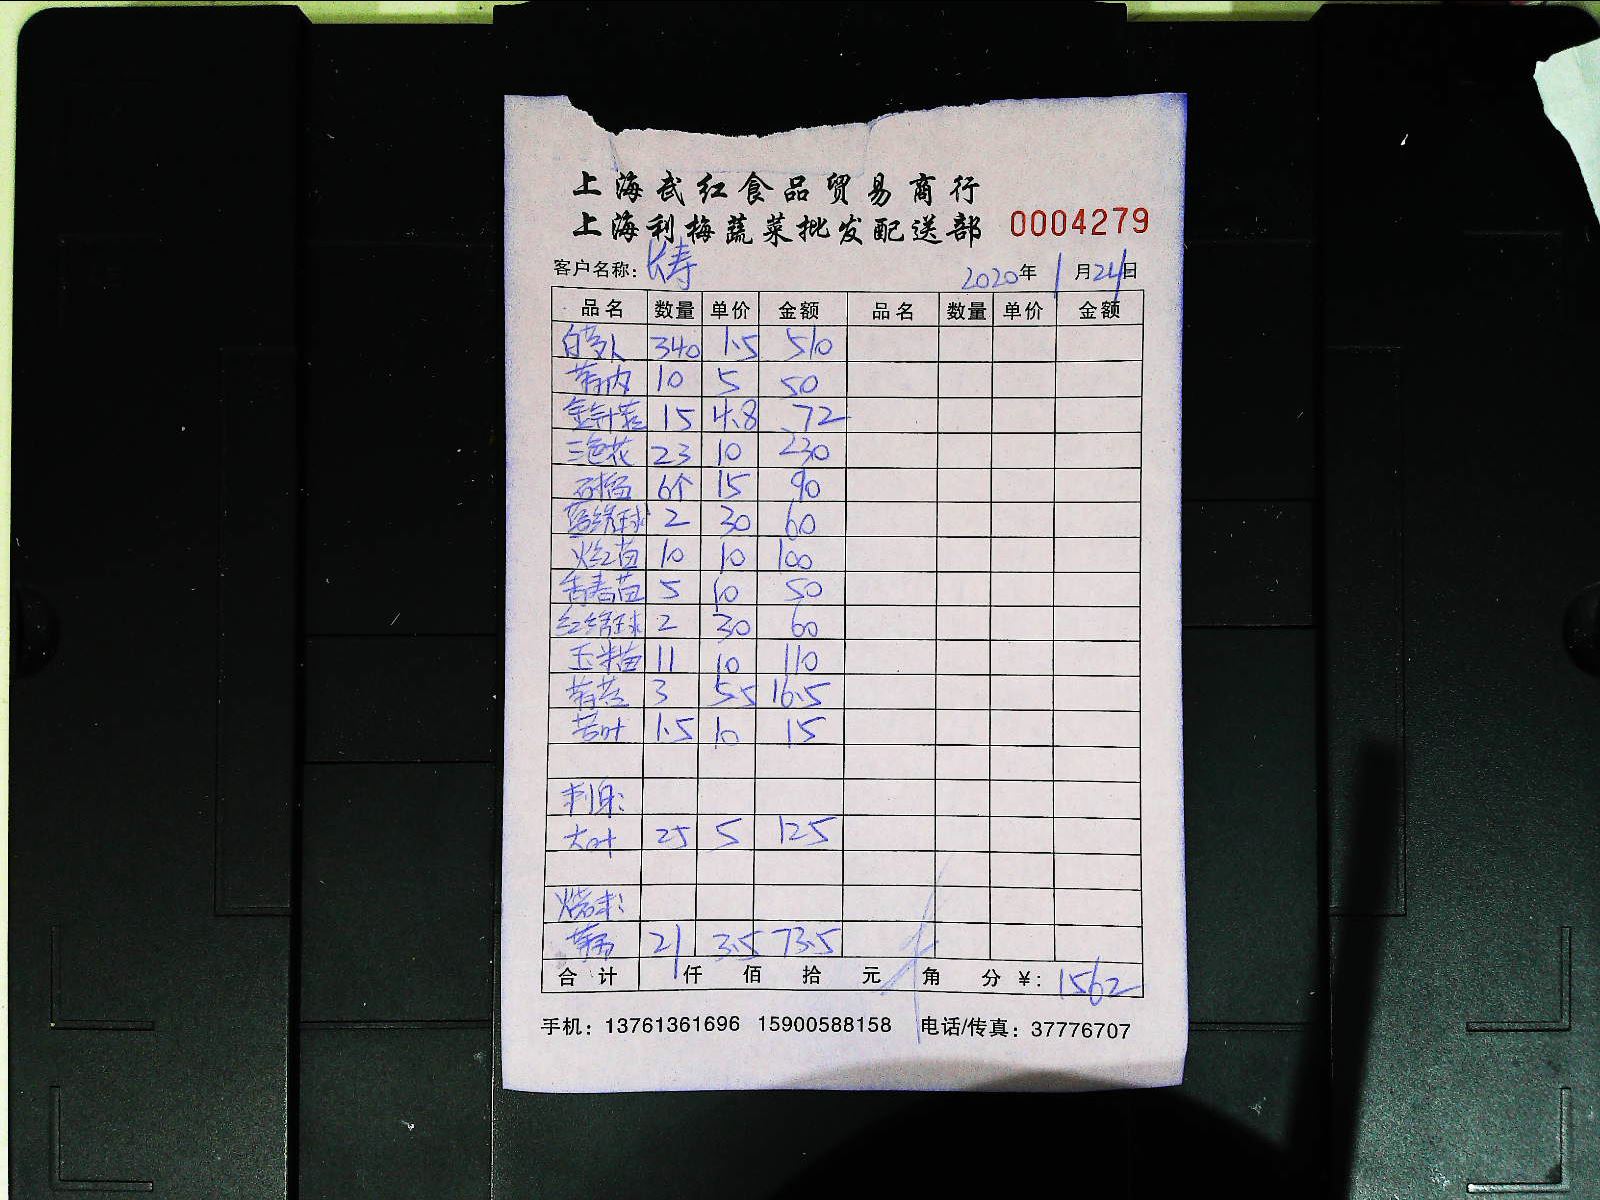 上海武红食品贸易商行
上海利梅蔬菜批发配送部 0004279
客户名称: 长寿 2020年 1月24日
品名 数量 单价 金额 品名 数量 单价 金额
340 1.5 510
10 5 50
15 4.8 72
三色花 23 10 230
6个 15 90
2 30 60
火红苗 10 10 100
香春苗 5 10 50
红绣球 2 30 60
玉米苗 11 10 110
3 5.5 16.5
苦叶 1.5 10 15
刺身:
大叶 25 5 125
21 3.5 73.5
合计 仟 佰 拾 元 角 分 ¥: 1562
手机: 13761361696 15900588158 电话/传真: 37776707